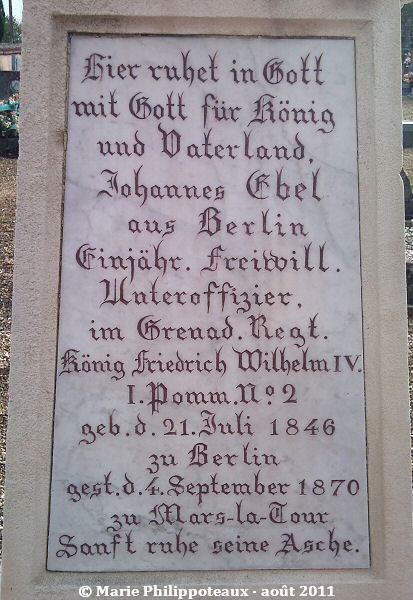 Hier ruhet in Gott
mit Gott für König
und Vaterland,
Johannes Ebel
aus Berlin
Einjähr. Freiwill.
Unteroffizier,
im Grenad. Regt.
König Friedrich Wilhelm IV.
I. Pomm. No 2
geb. d. 21. Juli 1846
zu Berlin
gest. d. 4. September 1870
zu Mars-la-Tour
Sanft ruhe seine Asche.
© Marie Philippoteaux - août 2011